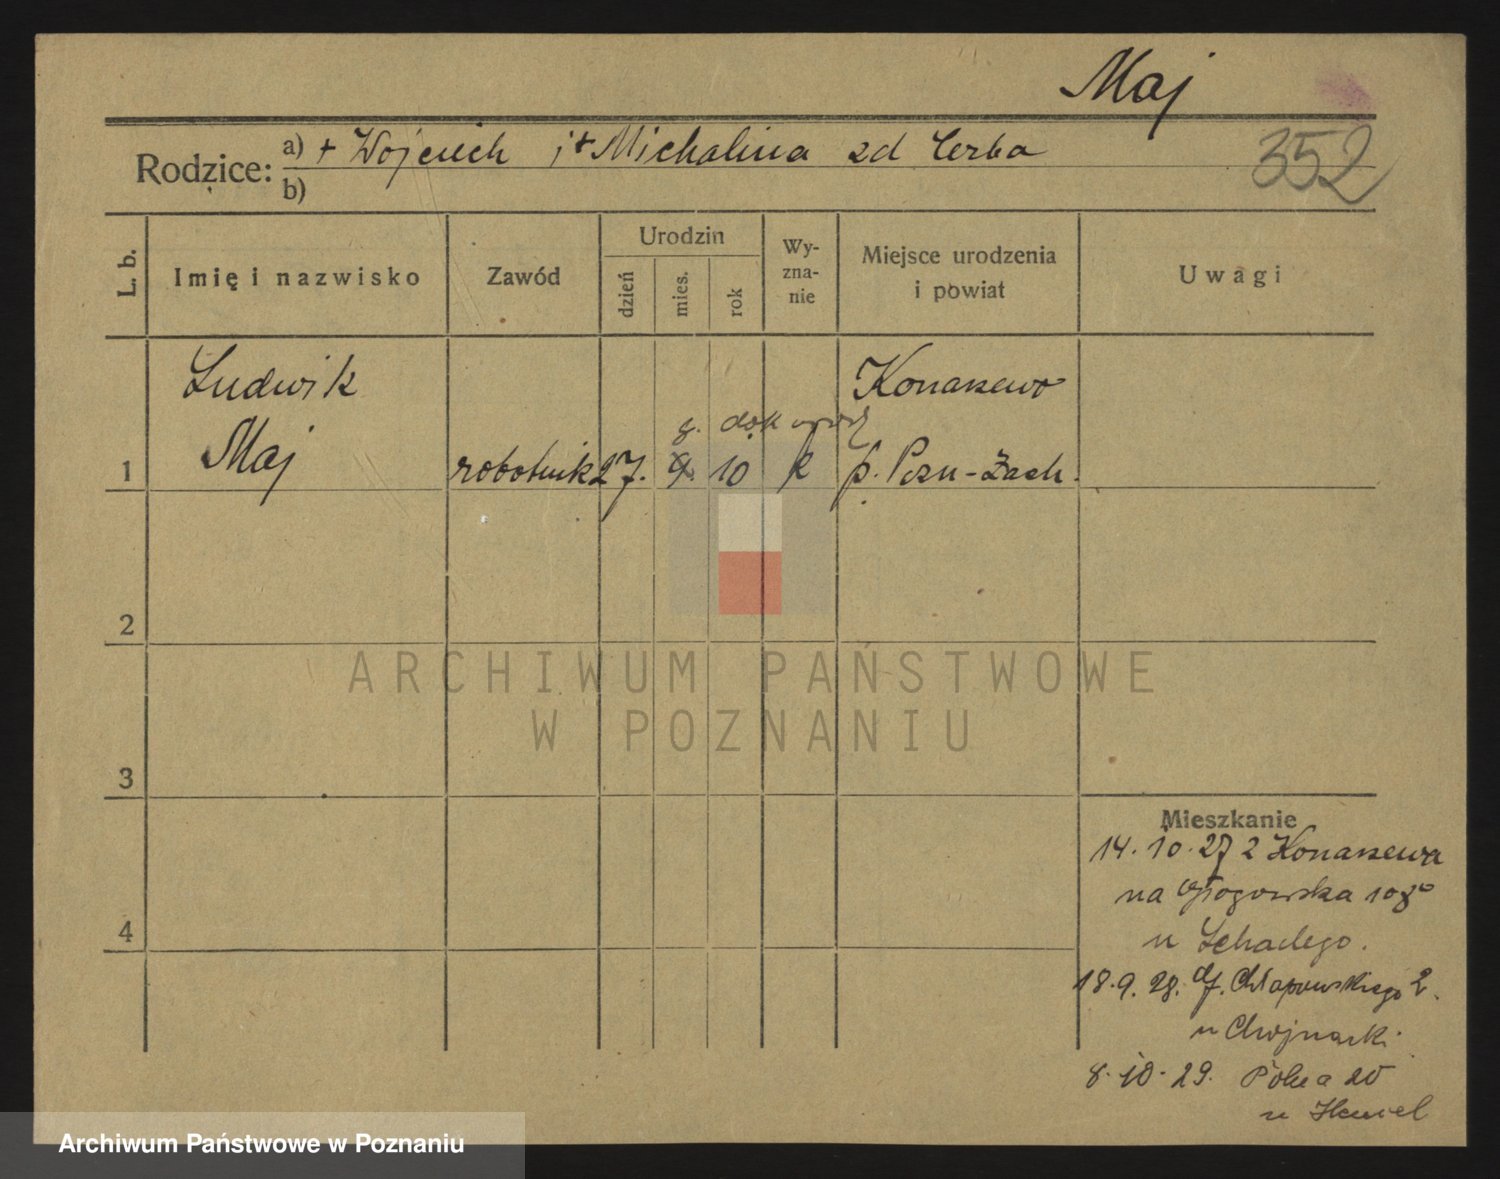 Maj
352
Rodzice: a) + Wojciech i + Michalina zd Cerba
b)
L. b.
Imię i nazwisko
Zawód
Urodzin
dzień
mies.
rok
Wy-
zna-
nie
Miejsce urodzenia
i powiat
Uwagi
Ludwik
Konarzewo
g. dok urodz
1 Maj robotnik 27. 9. 10 k p. Pozn-Zach.
2
3
4
ARCHIWUM PAŃSTWOWE
W POZNANIU
Mieszkanie
14.10.27 z Konarzewa
na Głogowska 108
u Schadego.
18.9.28. Chłapowskiego 2.
u Chojnacki
8.10.29. Polna 20
u
Archiwum Państwowe w Poznaniu